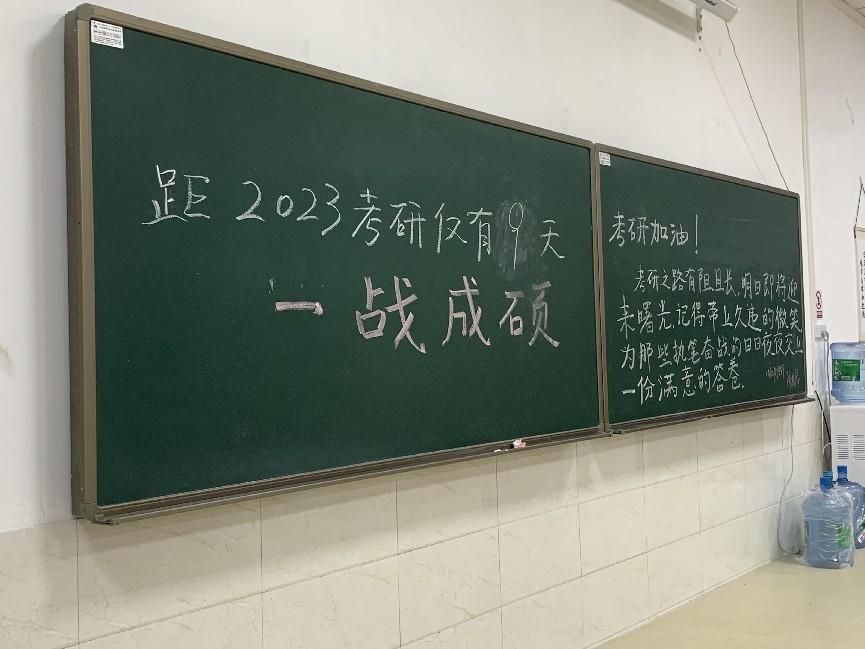 距2023考研仅有9天
一战成硕
考研加油！
考研之路有阻且长，明日即将迎
来曙光，记得带上久违的微笑
为那些执笔奋战的日日夜夜交上
一份满意的答卷.